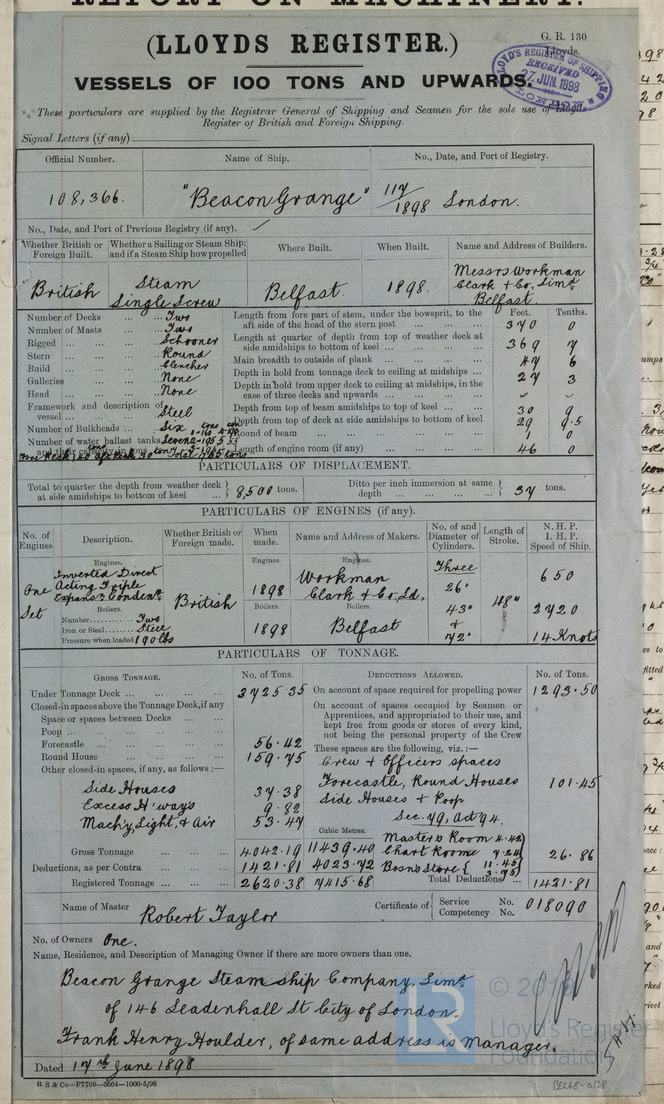 REPORT ON MACHINERY.
(LLOYDS REGISTER.)
G. R. 130
Lloyds.
LLOYD'S REGISTER OF SHIPPING
RECEIVED
27 JUN. 1898
LONDON
VESSELS OF 100 TONS AND UPWARDS.
These particulars are supplied by the Registrar General of Shipping and Seamen for the sole use of Lloyds
Register of British and Foreign Shipping.
Signal Letters (if any)
Official Number. Name of Ship. No., Date, and Port of Registry.
108,366. "Beacon Grange" 117/1898 London.
No., Date, and Port of Previous Registry (if any).
Whether British or Foreign Built. Whether a Sailing or Steam Ship; and if a Steam Ship how propelled Where Built. When Built. Name and Address of Builders.
British Steam Single Screw Belfast. 1898. Messrs Workman Clark & Co, Limd Belfast.
Number of Decks Two
Number of Masts Two
Rigged Schooner
Stern Round
Build Clencher
Galleries None
Head None
Framework and description of vessel Steel
Number of Bulkheads Six
Number of water ballast tanks, Seven
and their capacity in tons
Feet. Tenths.
Length from fore part of stem, under the bowsprit, to the aft side of the head of the stern post 370 0
Length at quarter of depth from top of weather deck at side amidships to bottom of keel 369 7
Main breadth to outside of plank 47 6
Depth in hold from tonnage deck to ceiling at midships 27 3
Depth in hold from upper deck to ceiling at midships, in the case of three decks and upwards
Depth from top of beam amidships to top of keel 30 9
Depth from top of deck at side amidships to bottom of keel 29 9.5
Round of beam 1 0
Length of engine room (if any) 46 0
PARTICULARS OF DISPLACEMENT.
Total to quarter the depth from weather deck at side amidships to bottom of keel 8,500 tons. Ditto per inch immersion at same depth 37 tons.
PARTICULARS OF ENGINES (if any).
No. of Engines Description. Whether British or Foreign made. When made. Name and Address of Makers. No. of and Diameter of Cylinders. Length of Stroke. N. H. P. I. H. P. Speed of Ship.
Engines. Engines. Engines.
One Set Inverted Direct Acting Triple Expansn Condensg British 1898 Workman Clark & Co, Ld, Three 26" 43" & 72" 48" 650 2720 14 Knots
Boilers. Boilers. Boilers.
Number Two 1898 Belfast
Iron or Steel Steel
Pressure when loaded 190 lbs
PARTICULARS OF TONNAGE.
GROSS TONNAGE. No. of Tons. DEDUCTIONS ALLOWED. No. of Tons.
Under Tonnage Deck 3725.35 On account of space required for propelling power 1293.50
Closed-in spaces above the Tonnage Deck, if any
Space or spaces between Decks
Poop
Forecastle 56.42
Round House 159.75
Other closed-in spaces, if any, as follows:—
Side Houses 37.38
Excess H'ways 9.82
Mach'y, Light, & Air 53.47
On account of spaces occupied by Seamen or Apprentices, and appropriated to their use, and kept free from goods or stores of every kind, not being the personal property of the Crew
These spaces are the following, viz.:—
Crew & Officers spaces
Forecastle, Round Houses 101.45
Side Houses & Poop
Sec. 79, Act 94.
Cubic Metres.
Master's Room 4.42
Gross Tonnage 4042.19 11439.40 Chart Room 7.24 26.86
Deductions, as per Contra 1421.81 4023.72 Bosns Store { 11.45 3.75 }
Registered Tonnage 2620.38 7415.68 Total Deductions 1421.81
Name of Master Robert Taylor Certificate of { Service No. Competency No. 018090
No. of Owners One.
Name, Residence, and Description of Managing Owner if there are more owners than one.
Beacon Grange Steam Ship Company, Limd
of 146 Leadenhall St City of London.
Frank Henry Houlder, of same address is manager.
Dated 17th June 1898
R S & Co—P7708—3664—1000-5/98
LR
Lloyd's Register
Foundation